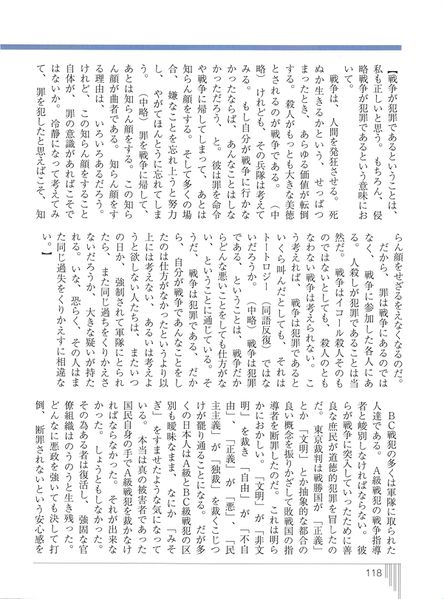 【戦争が犯罪であるということは、
私も正しいと思う。もちろん、侵
略戦争が犯罪であるという意味にお
いて。
　戦争は、人間を発狂させる。死
ぬか生きるかという、せっぱつ
まったとき、あらゆる価値が転倒
する。殺人がもっとも大きな美徳
とされるのが戦争である。（中
略）けれども、その兵隊は考えて
みる。もし自分が戦争に行かな
かったならば、あんなことはしな
かっただろう、と。彼は罪を命令
や戦争に帰してしまって、あとは
知らん顔をする。そして多くの場
合、嫌なことを忘れ上うと努力
し、やがてほんとうに忘れてしま
う。（中略）罪を戦争に帰して、
あとは知らん顔をする。この知ら
ん顔が曲者である。知らん顔をす
る理由は、いろいろあるだろう。
けれど、この知らん顔をすること
自体が、罪の意識があればこそで
はないか。冷静になって考えてみ
て、罪を犯したと思えばこそ、知
らん顔をせざるをえなくなるのだ。
　だから、罪は戦争にあるのでは
なく、戦争に参加した各人にあ
る。人殺しが犯罪であることは当
然だ。戦争はイコール殺人そのも
のではないとしても、殺人のとも
なわない戦争は考えられない。こ
う考えれば、戦争は犯罪であると
いくら叫んだとしても、それは
トートロジー（同語反復）ではな
いだろうか。（中略）戦争は犯罪
である、ということは、戦争だか
らどんな悪いことをしても仕方がな
い、ということに通じている。そ
うだ、戦争は犯罪である、だか
ら、自分が戦争であんなことをし
たのは仕方がなかったというより以
上には考えない、あるいは考えよ
うと欲しない人たちは、またいつ
の日か、強制されて軍隊にとられ
たら、また同じ過ちをくりかえさ
ないだろうか、大きな疑いが持た
れる。いな、恐らく、その人はま
た同じ過失をくりかえすに相違な
い。】
　BC戦犯の多くは軍隊に取られた
人達である。A級戦犯の戦争指導
者と峻別しなければならない。彼
らが戦争に突入していったために善
良な庶民が道徳的犯罪を冒したの
だ。東京裁判は戦勝国が「正義」
とか「文明」とか抽象的な都合の
良い概念を振りかざして敗戦国の指
導者を断罪したのだ。これは明ら
かにおかしい。「文明」が「非文
明」を裁き「自由」が「不自
由」、「正義」が「悪」、「民
主」が「独裁」を裁くこじつ
けが罷り通ることになる。だが多
くの日本人はA級とBC級戦犯の区
別も曖昧なまま、なにか「みそ
ぎ」をすませたような気になって
いる。本当は真の被害者であった
国民自身の手でA級戦犯を裁かなけ
ればならなかった。それが出来な
かった。しようともしなかった。
その為ある者は復活し、強固な官
僚組織はのうのうと生き残った。
どんなに悪政を強いても決して打
倒、断罪されないという安心感を
118